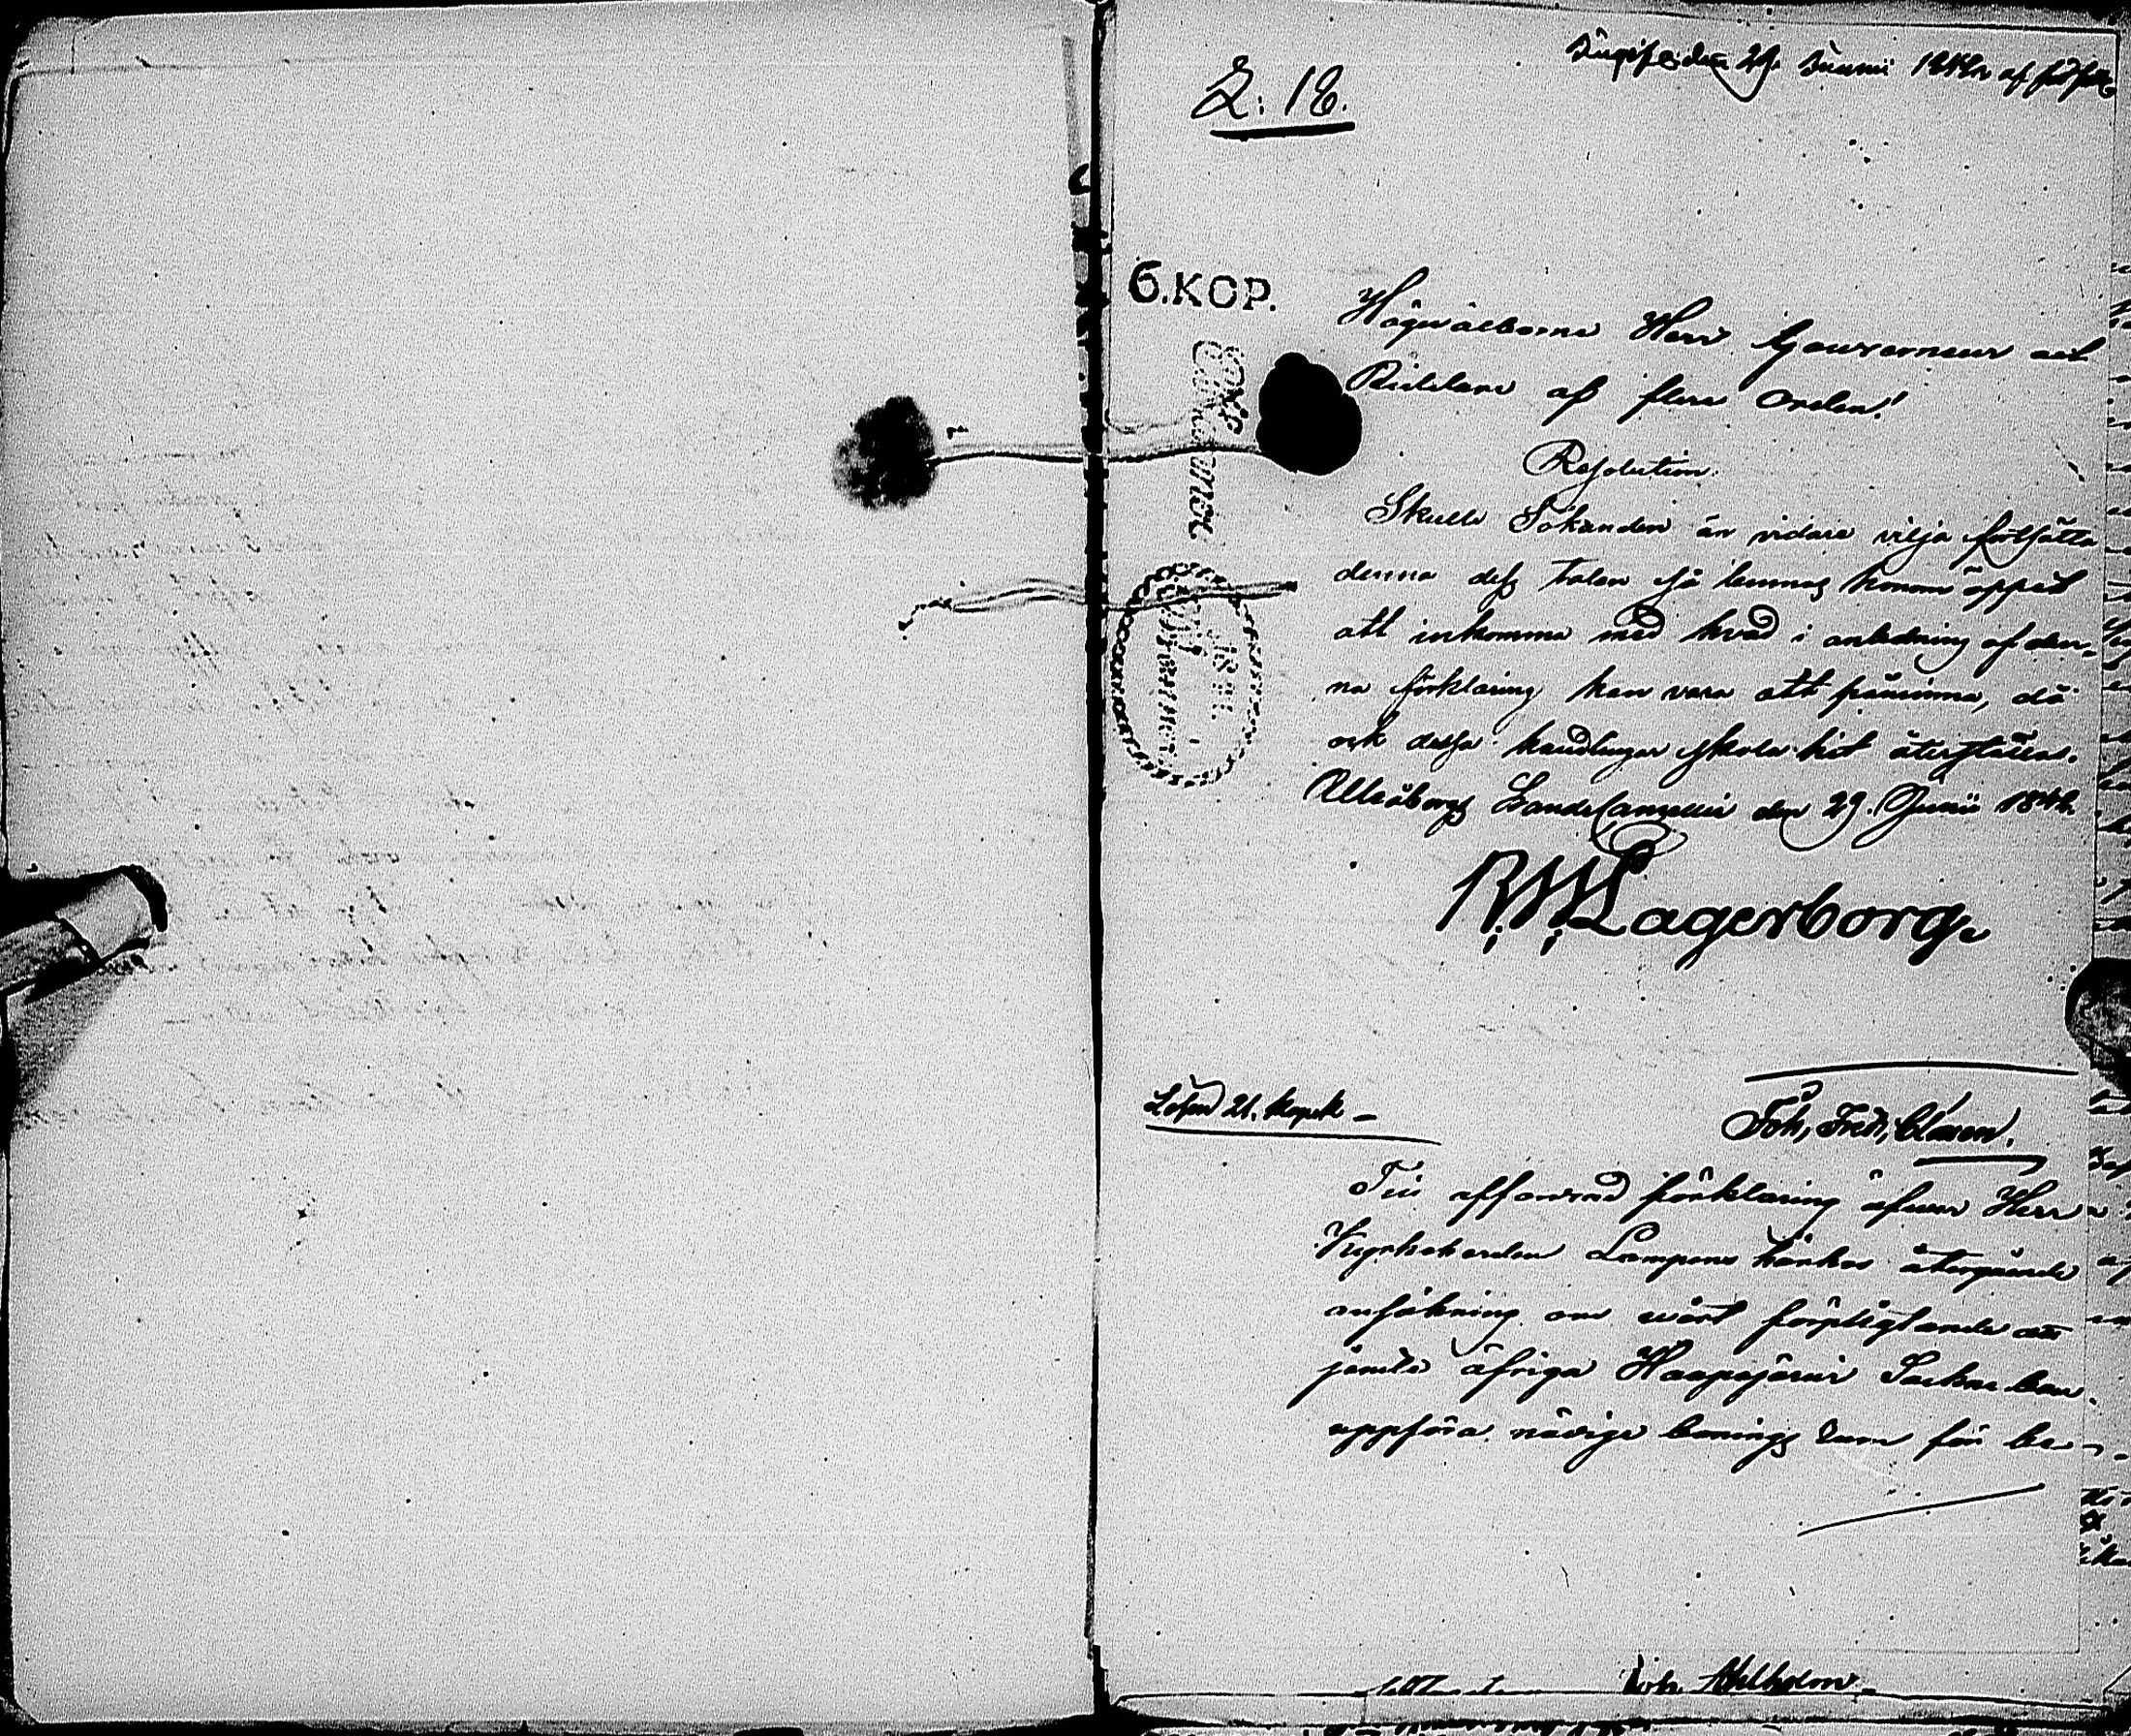 2: 18.
den 29 Junii 1842 af
6.KOP.
Högwälborne Herr Gouverneur och
Riddare af flere Orden!
Resolution.
Skulle Sökanden än vidare vilja fortsätta
denna dess talan så lemnas honom öppet
att inkomma med hvad i anledning af den-
na förklaring kan vara att påminna, då
och dessa handlingar skola hit återställas.
Uleåborgs LandsCancellie den 29. Junii 1842.
R.W.Lagerborg.
Lösen 21. Kopek -
Joh, Fred, Clasen.
Till affordrad förklaring öfwer Herr
Kyrkoherden Lampens härhos återgående
ansökning om wårt förpligtande att
jemte öfriga Haapajärvi Sockne boar
uppföra nödige bonings rum för be-
Joh. Ahlholm